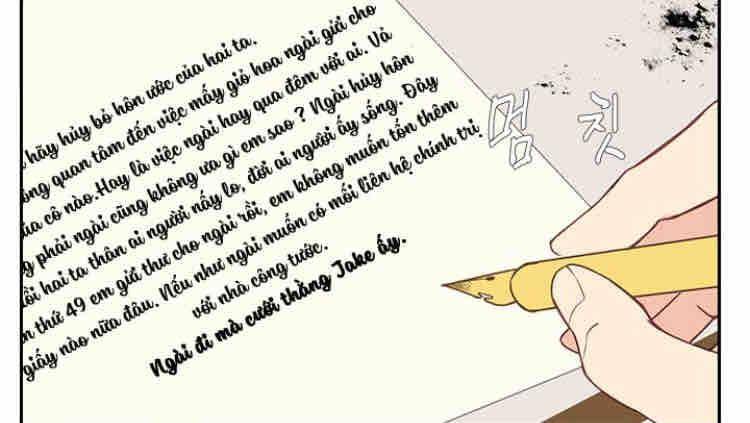 hãy hủy bỏ hôn ước của hai ta.
quan tâm đến việc mấy giỏ hoa ngài gửi cho
cô nào. Hay là việc ngài hay qua đêm với ai. Vả
phải ngài cũng không ưa gì em sao ? Ngài hủy hôn
hai ta thân ai người nấy lo, đời ai người ấy sống. Đây
thứ 49 em giử thư cho ngài rồi, em không muốn tốn thêm
giấy nào nữa đâu. Nếu như ngài muốn có mối liên hệ chính trị
với nhà công tước.
Ngài đi mà cưới thằng Jake ấy.
멈칫